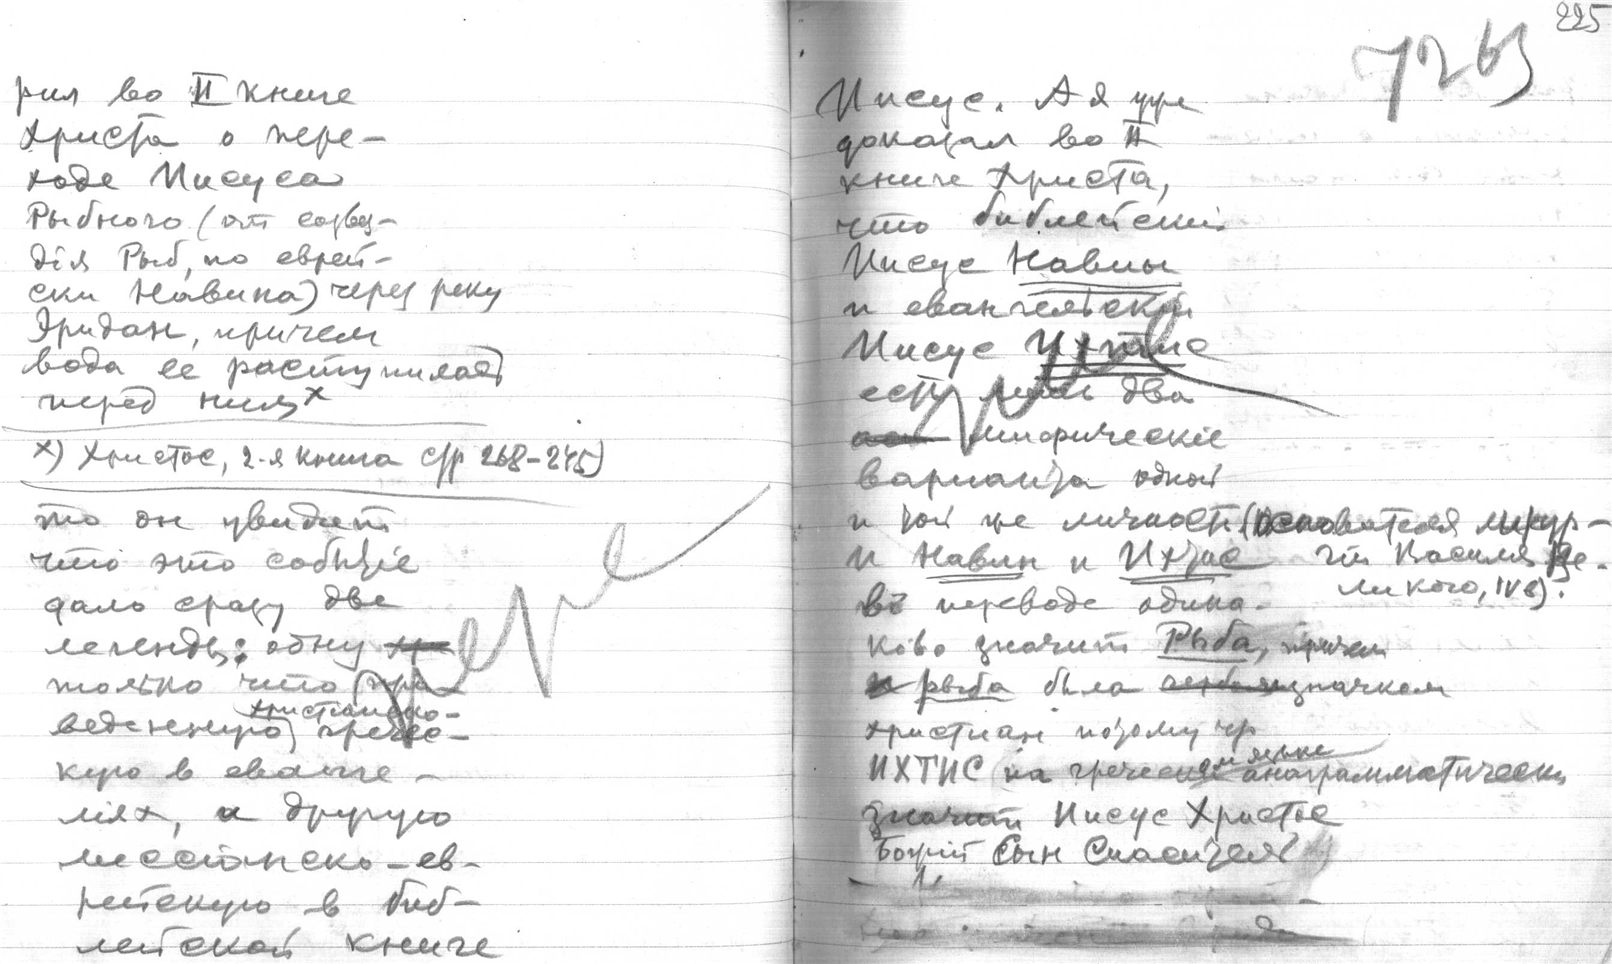 рил во II книге
Христа о пере-
ходе Иисуса
Рыбного (от созвез-
дія Рыб, по еврей-
ски Навина) через реку
Эридан, причем
вода ее расступилась
перед ним x
x) Христос, 2-я книга стр 268-275)
то он увидит
что это событіе
дало сразу две
легенды: одну
только что при-
веденную христианско-
гречес-
кую в еванге-
ліях, и другую
мессіанско-ев-
рейскую в биб-
лейской книге
225
7263
Иисус. А я уже
доказал во II
книге Христа,
что библейскій
Иисус Навин
и евангельскій
Иисус Ихтис
есть лишь два
мифическіе
варианта одной
и той же личности (основателя литур-
гіи Василия Ве-
ликого, IV в).
и Навин и Ихтис
въ переводе одина-
ково значит Рыба, причем
рыба была значком
христиан потому что
ИХТИС на греческом языке анаграмматически
значит Иисус Христос
Божій Сын Спаситель